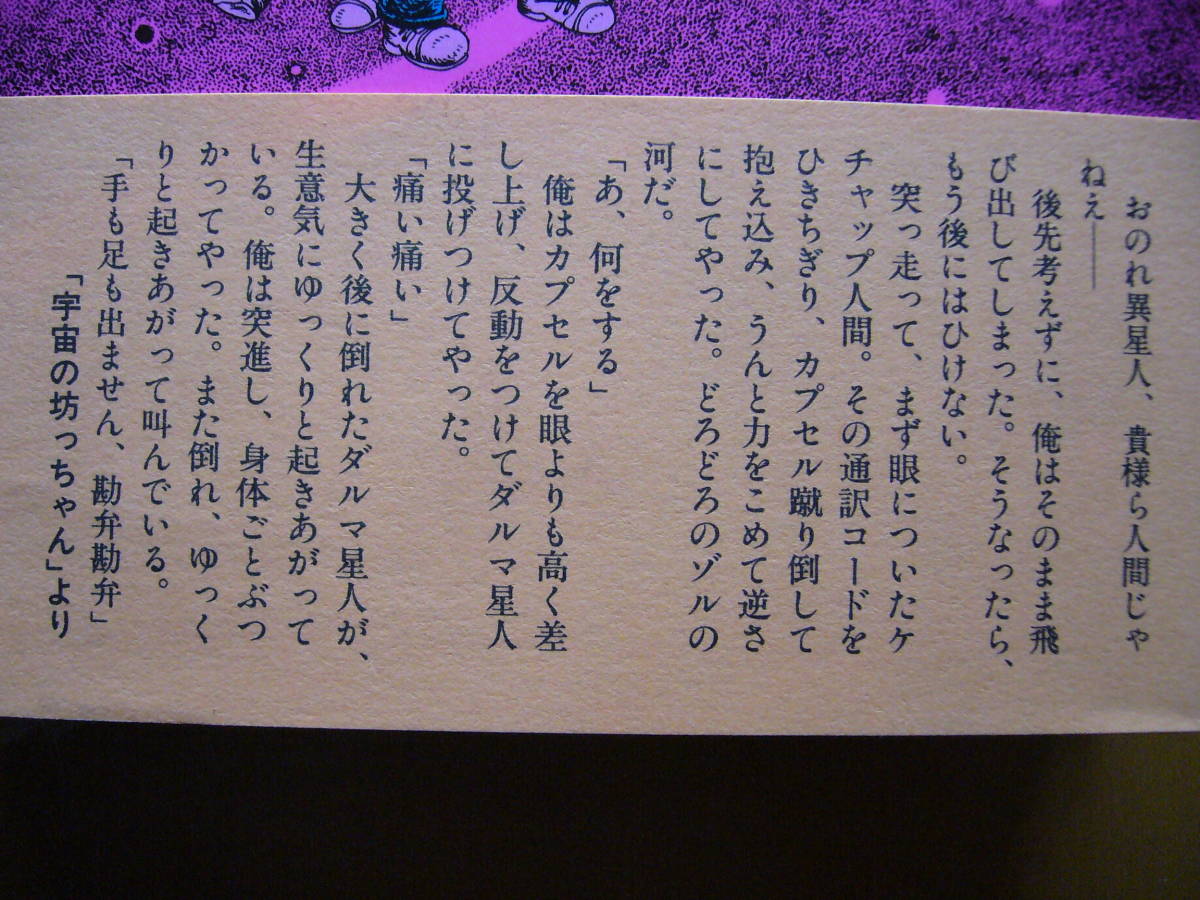 おのれ異星人、貴様ら人間じゃ
ねえ――
後先考えずに、俺はそのまま飛
び出してしまった。そうなったら、
もう後にはひけない。
突っ走って、まず眼についたケ
チャップ人間。その通訳コードを
ひきちぎり、カプセル蹴り倒して
抱え込み、うんと力をこめて逆さ
にしてやった。どろどろのゾルの
河だ。
「あ、何をする」
俺はカプセルを眼よりも高く差
し上げ、反動をつけてダルマ星人
に投げつけてやった。
「痛い痛い」
大きく後に倒れたダルマ星人が、
生意気にゆっくりと起きあがって
いる。俺は突進し、身体ごとぶつ
かってやった。また倒れ、ゆっく
りと起きあがって叫んでいる。
「手も足も出ません、勘弁勘弁」
「宇宙の坊っちゃん」より